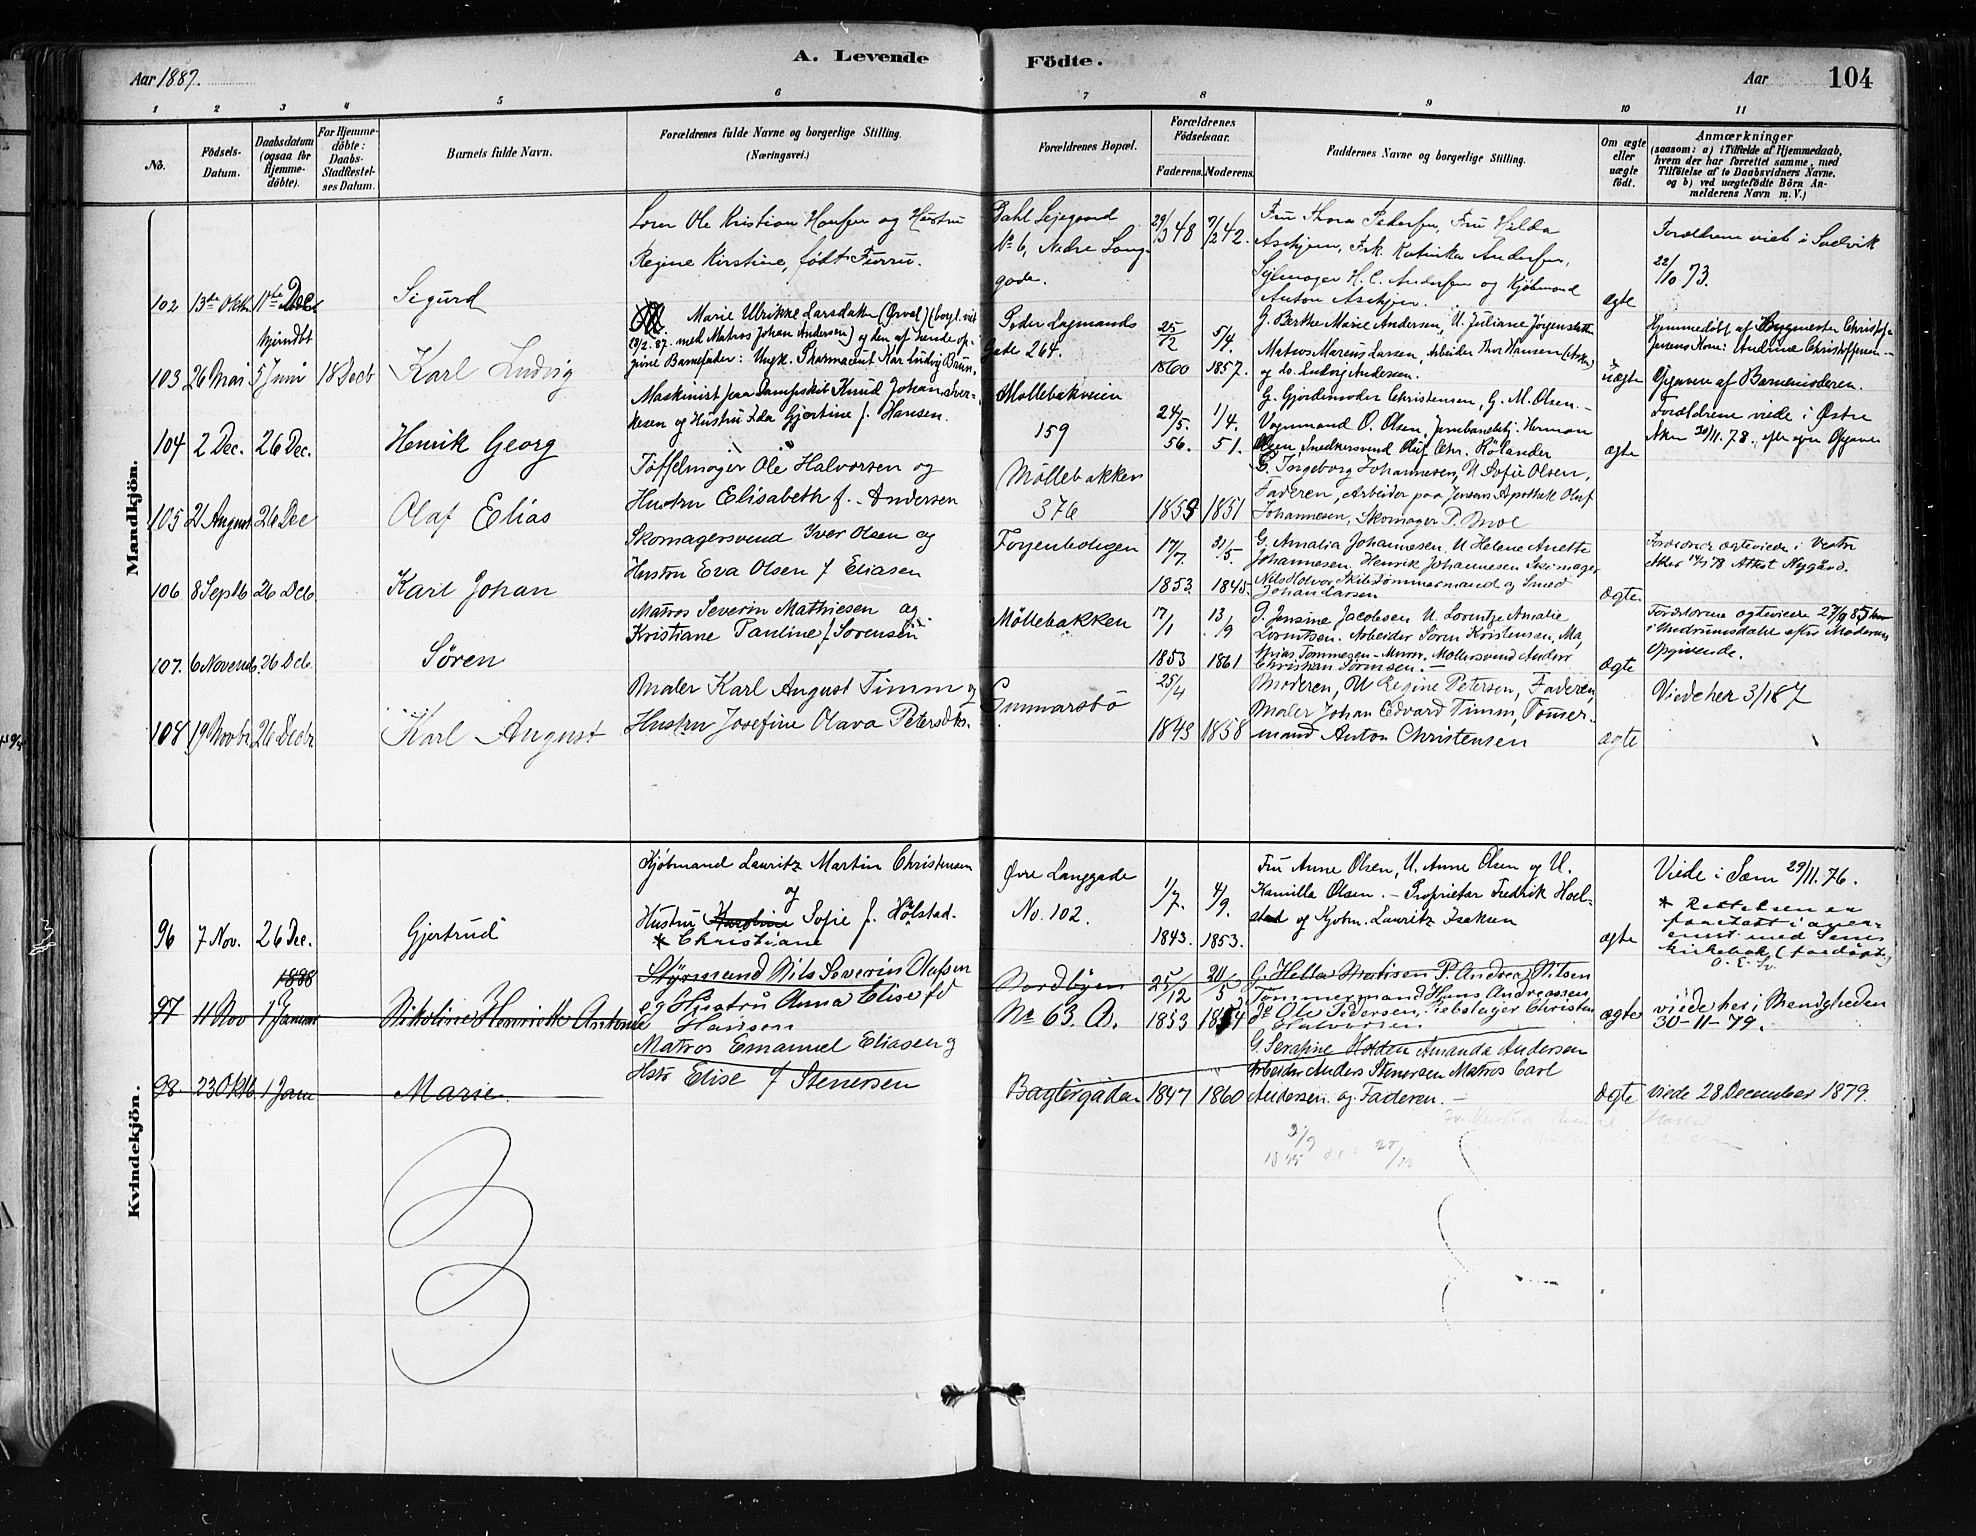 Aar 1887.
A. Levende
Födte.
Aar
104
1 2 3 4 5 6 7 8 9 10 11
No.
Födsels-Datum.
Daabsdatum (ogsaa for Hjemme-döbte).
For Hjemme-döbte: Daabs-Stadfæstel-ses Datum.
Barnets fulde Navn.
Forældrenes fulde Navne og borgerlige Stilling. (Næringsvei.)
Forældrenes Bopæl.
Forældrenes Födselsaar.
Faderens. Moderens.
Faddernes Navne og borgerlige Stilling.
Om ægte eller uægte födt.
Anmærkninger
(saasom: a) i Tilfælde af Hjemmedaab,
hvem der har forrettet samme, med
Tilföielse af to Daabsvidners Navne.
og b) ved uægtefödte Börn An-
melderens Navn m. V.)
Mandkjön.
102 13de Okt. 11te Dec
Sigurd
Ole Kristian Hansen og Hustru
Regine Kirstine, født Furru.
Dahl Lejegaard
No 6, Nedre Lang-
gade.
29/3 48 7/2 42.
Fru Thora Pedersen, Fru Hilda
Aschjem, Frk. Katinka Andersen,
Sejlmager H. C. Andersen og Kjøbmand
Anton Aschjem.
ægte
Forældrene viet i Svelvik
22/10 73.
103 26 Mai 5 Juni 18 Decb
hjemdbt
Karl Ludvig
Marie Ulrikke Larsdatter (Ørvel)
med Matros Johan Andersen) og den af hende op-
givne Barnefader: Ungk. Pharmaceut Karl Ludvig Brun.
Peder Lagmands
Gade 264.
25/2 5/4.
1860 1857.
G. Berthe Marie Andersen, U. Juliane Jørgensdatter
Matros Marcus Larsen, Arbeider Thor Hansen
og do. Ludvig Andersen.
uægte
Hjemmedøbt af Bygmester Christof-
fersens Kone: Andrine Christoffersen.
Opgaven af Barnemoderen.
104 2 Dec. 26 Dec.
Henrik Georg
Maskinist paa Dampskib Knud Johan Iver-
kesen og Hustru Ida Gjertine f. Hansen.
Møllebakveien
159
24/5. 1/4.
56. 51.
G. Gjordemoder Christensen, G. M. Olsen.
Vognmand O. Olsen, Jernbanebetj. Herman
Olsen, Snedkersvend Oluf Chr. Rølander
ægte
Forældrene viede i Østre
Aker 30/11.78. efter egen Opgave
105 21 August 26 Dec
Olaf Elias
Tøffelmager Ole Halvorsen og
Hustru Elisabeth f. Andersen
Møllebakken
376
1859 1851
G. Ingeborg Johannesen, U Sofie Olsen,
Faderen, Arbeider paa Jensens Apothek Oluf
Johannesen, Skomager P. Moe
106 8 Septb 26 Dcb
Karl Johan
Skomagersvend Iver Olsen og
Hustru Eva Olsen f Eliasen
Foyenboligen
17/7. 31/5.
1853 1845.
G. Amalia Johannesen, U Helene Anette
Johannesen. Henrik Johannesen Skomager
Nils Halvor Skibstømmermand og Smed
Johan Larsen
ægte
Forældrene ægteviede i Vestre
Aker 14/7 78 Attest Nygård.
107. 6 Novemb. 26 Dcb.
Søren
Matros Severin Mathiesen og
Kristiane Pauline f. Sørensen
Møllebakken
17/1 13/9
1853 1861
G. Jensine Jacobsen U. Lorentze Amalie
Lorentsen. Arbeider Søren Kristensen, Ma-
thias Tommesen - Murer. Møllersvend Anders
Christian Sørensen.
ægte
Forældrene ægteviede 27/9 85
i Undrumsdahl efter Moderens
Opgivende.
108 19 Novbr 26 Decbr
Karl August
Maler Karl August Timm og
Hustru Josefine Olava Petersdtr.
Gunnarsbø
25/4
1843 1858
Moderen, U Regine Petersen, Faderen,
Maler Johan Edvard Timm, Tømer-
mand Anton Christensen
ægte
Viede her 3/1 87
Kvindekjön.
96 7 Nov. 26 Dec.
Gjertrud
Kjøbmand Lauritz Martin Christensen
og
Hustru Karoline Sofie f. Hølstad.
* Christiane
Øvre Langgade
No. 102.
1/7. 4/9.
1843. 1853.
Fru Anne Olsen, U. Anne Olsen og U.
Kamilla Olsen. - Proprietær Fredrik Hoel-
stad og Kjøbm. Lauritz Isaksen
ægte
Viede i Sem 29/11.76.
* Rettelsen er
foretatt i over-
enst. med Sems
kirkebok
97 11 Nov 1888 1 Januar
Nikoline Henriette Antonie
Styrmand Nils Severin Olafsen
og Hustru Anna Elise fd
Hansen
Nordbyen
No 63. A.
25/12 20/5
1853 1854
G. Hella Mathisen P. Andrea Nilsen
Tømmermand Hans Andreassen
do Ole Pedersen, Rebslager Christen
Halvorsen
ægte
viede her i Menigheden
30-11-79.
98 23 Oktb 1 Jan
Marie
Matros Emanuel Eliasen og
Hstr Elise f Stenersen
Baglergaden
1847 1860
G. Serafine Holden Amanda Andersen
Arbeider Anders Stenersen Matros Carl
Andersen og Faderen.
ægte
viede 28 December 1879.